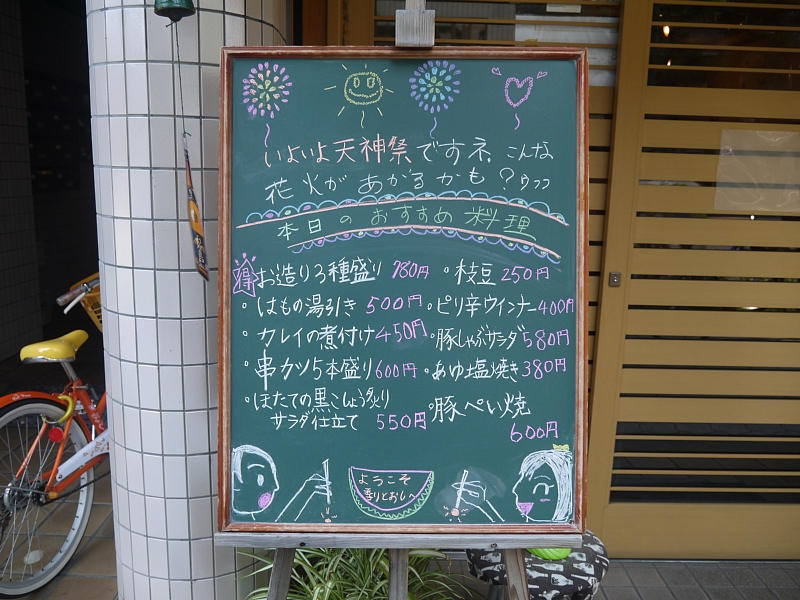 いよいよ天神祭ですネ、こんな
花火があがるかも？ウフフ
本日のおすすめ料理
得 お造り3種盛り 780円
・はもの湯引き 500円
・カレイの煮付け 450円
・串カツ5本盛り 600円
・ほたての黒こしょう炙り
サラダ仕立て 550円
・枝豆 250円
・ピリ辛ウインナー 400円
・豚しゃぶサラダ 580円
・あゆ塩焼き 380円
・豚ぺい焼
600円
ようこそ
季りとおしへ